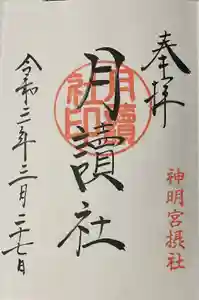 奉拝
神明宮摂社
月讀社
月讀社印
令和三年二月二十七日